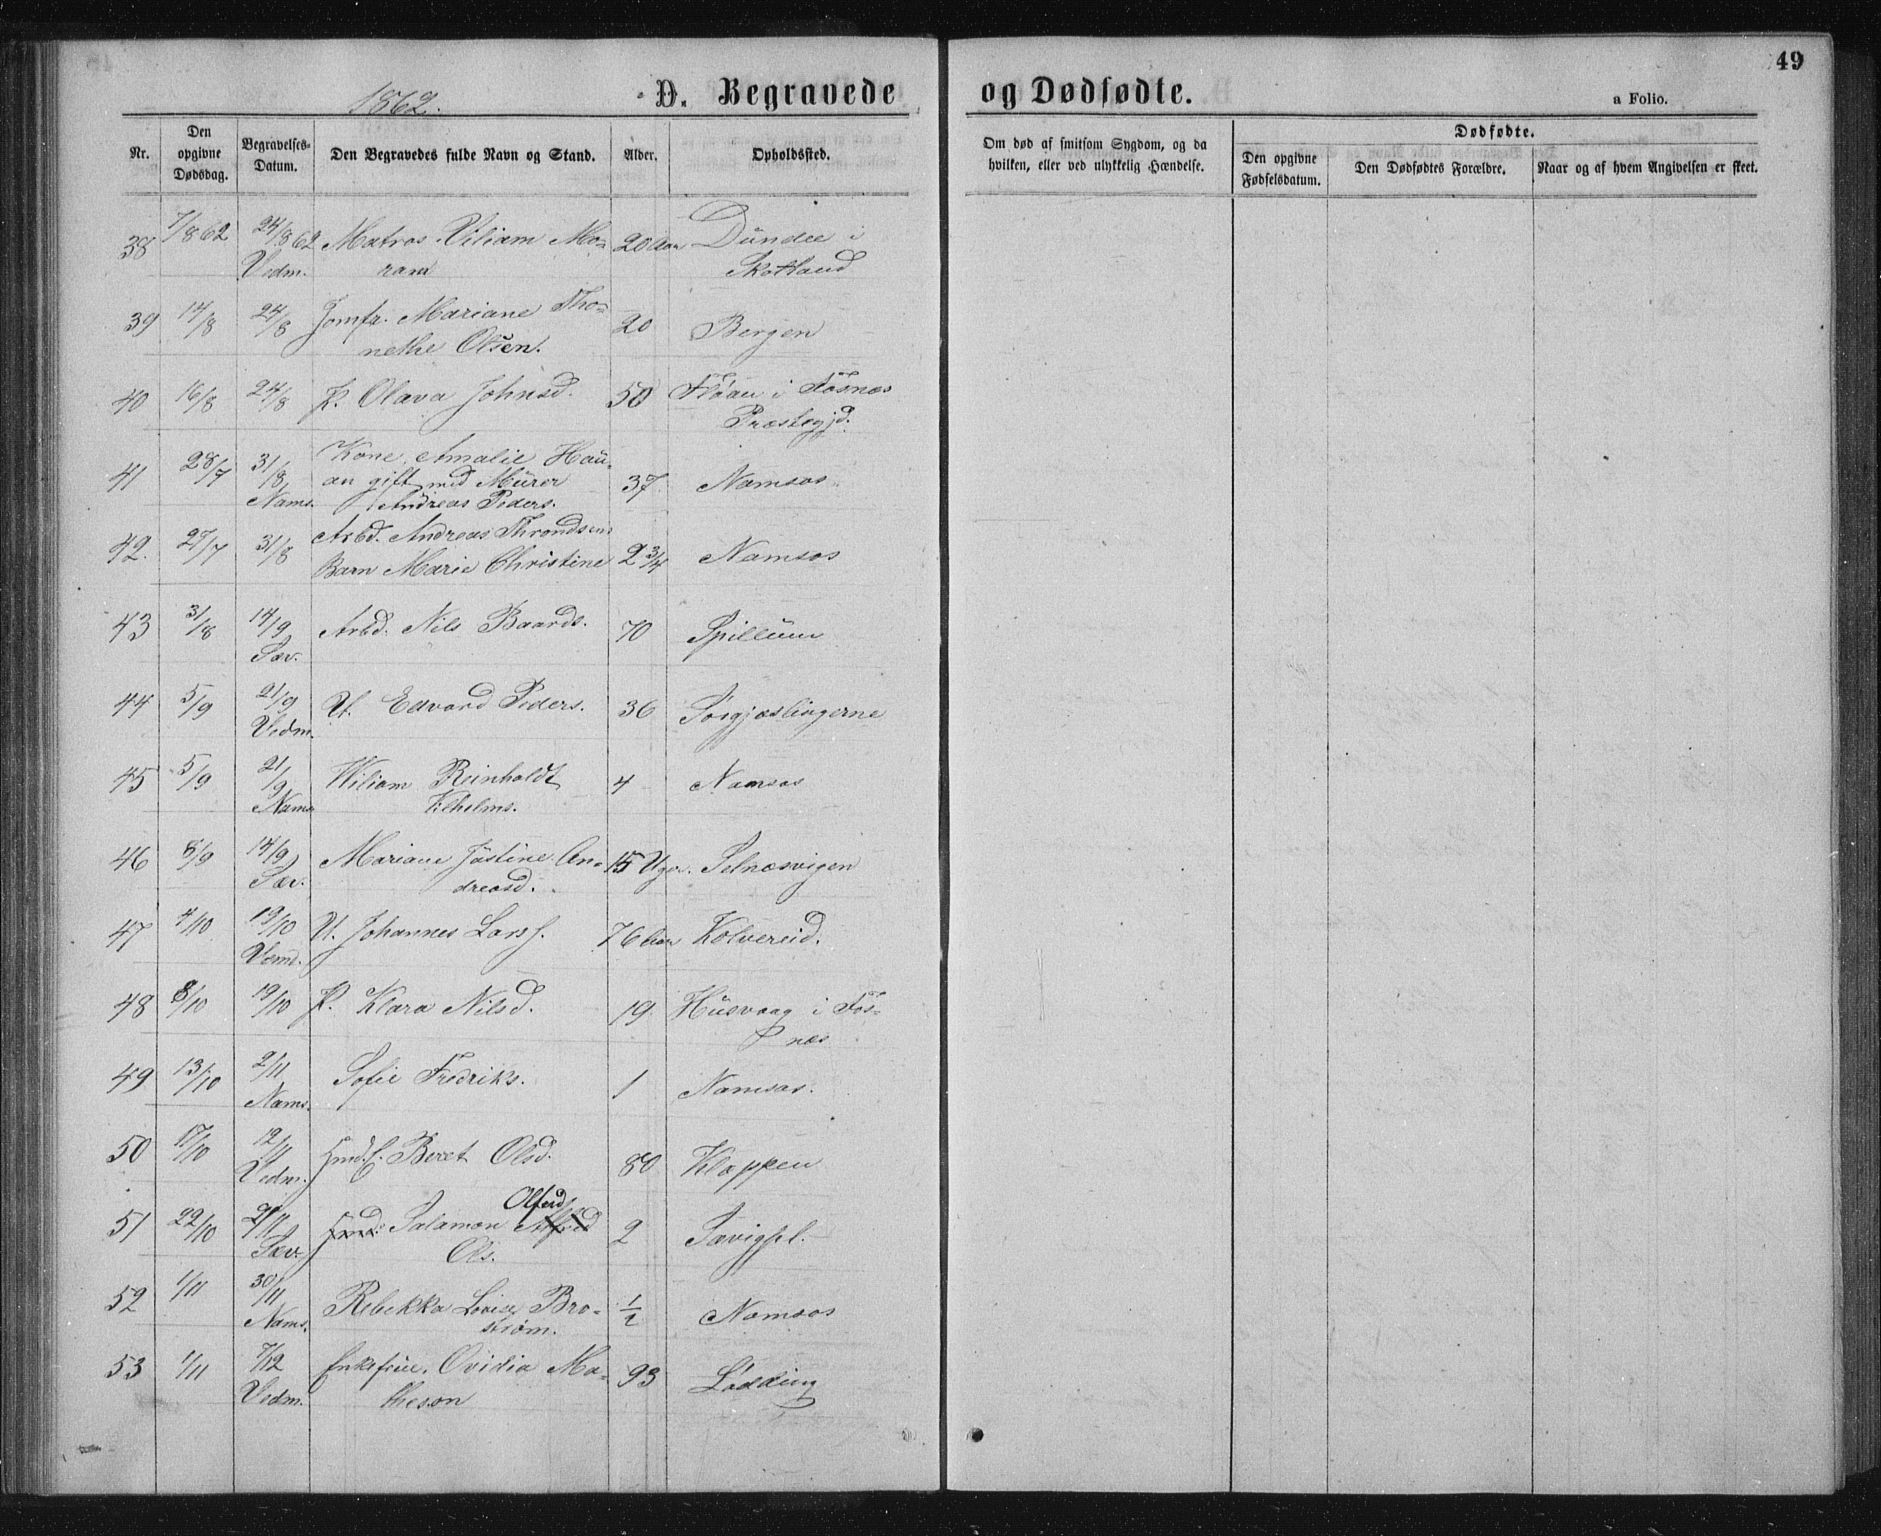 49
1862.
D. Begravede og Dødfødte.
a Folio.
Nr.
Den opgivne Dødsdag.
Begravelses-Datum.
Den Begravedes fulde Navn og Stand.
Alder.
Opholdssted.
Om død af smitsom Sygdom, og da hvilken, eller ved ulykkelig Hændelse.
Dødfødte.
Den opgivne Fødselsdatum.
Den Dødfødtes Forældre.
Naar og af hvem Angivelsen er skeet.
38 7/8 62 24/8 62 Matros Viliam Mo- 20 Aar Dundee i
Vedm. ram Skotland
39 14/8 24/8 Jomfr. Mariane Tho- 20 Bergen
nethe Olsen.
40 16/8 24/8 P. Olava Johnsd. 50 Fløan i Fosnæs
Præstegjd.
41 28/7 31/8 Kone Amalie Hau- 37 Namsos
Nams. an gift med Murer
Andreas Peders.
42. 27/7 31/8 Arbd. Andreas Throndsens
Barn Marie Christine 2 3/4 Namsos
43 31/8 14/9 Arbd. Nils Baards. 70 Spillum
Sæv.
44 5/9 21/9 U. Edvard Peders. 36 Sørgjæslingerne
Vedm.
45 5/9 21/9 Wiliam Reinholdt 4 Namsos
Nams Vilhelms.
46 8/9 14/9 Mariane Justine An- 15 Uger. Selnæsvigen
Sæv. dreasd.
47 4/10 19/10 U. Johannes Larss. 76 Aar Kolvereid.
Vemd.
48 8/10 19/10 P. Klara Nilsd. 19 Husvaag i Fos-
næs
49 13/10 2/11 Sofie Fredriks. 1 Namsos.
Nams.
50 17/10 12/11 Beret Olsd. 80 Kloppen
Vedm.
51 22/10 Salamon Olferd 2 Sævigpl.
Sæv. Ols.
52 1/11 30/11 Rebekka Lovise Bro- 1/2 Namsos
Nams. strøm.
53 1/11 7/12 Enkefrue. Ovidia Ma- 93 Lødding
Vedm. theson